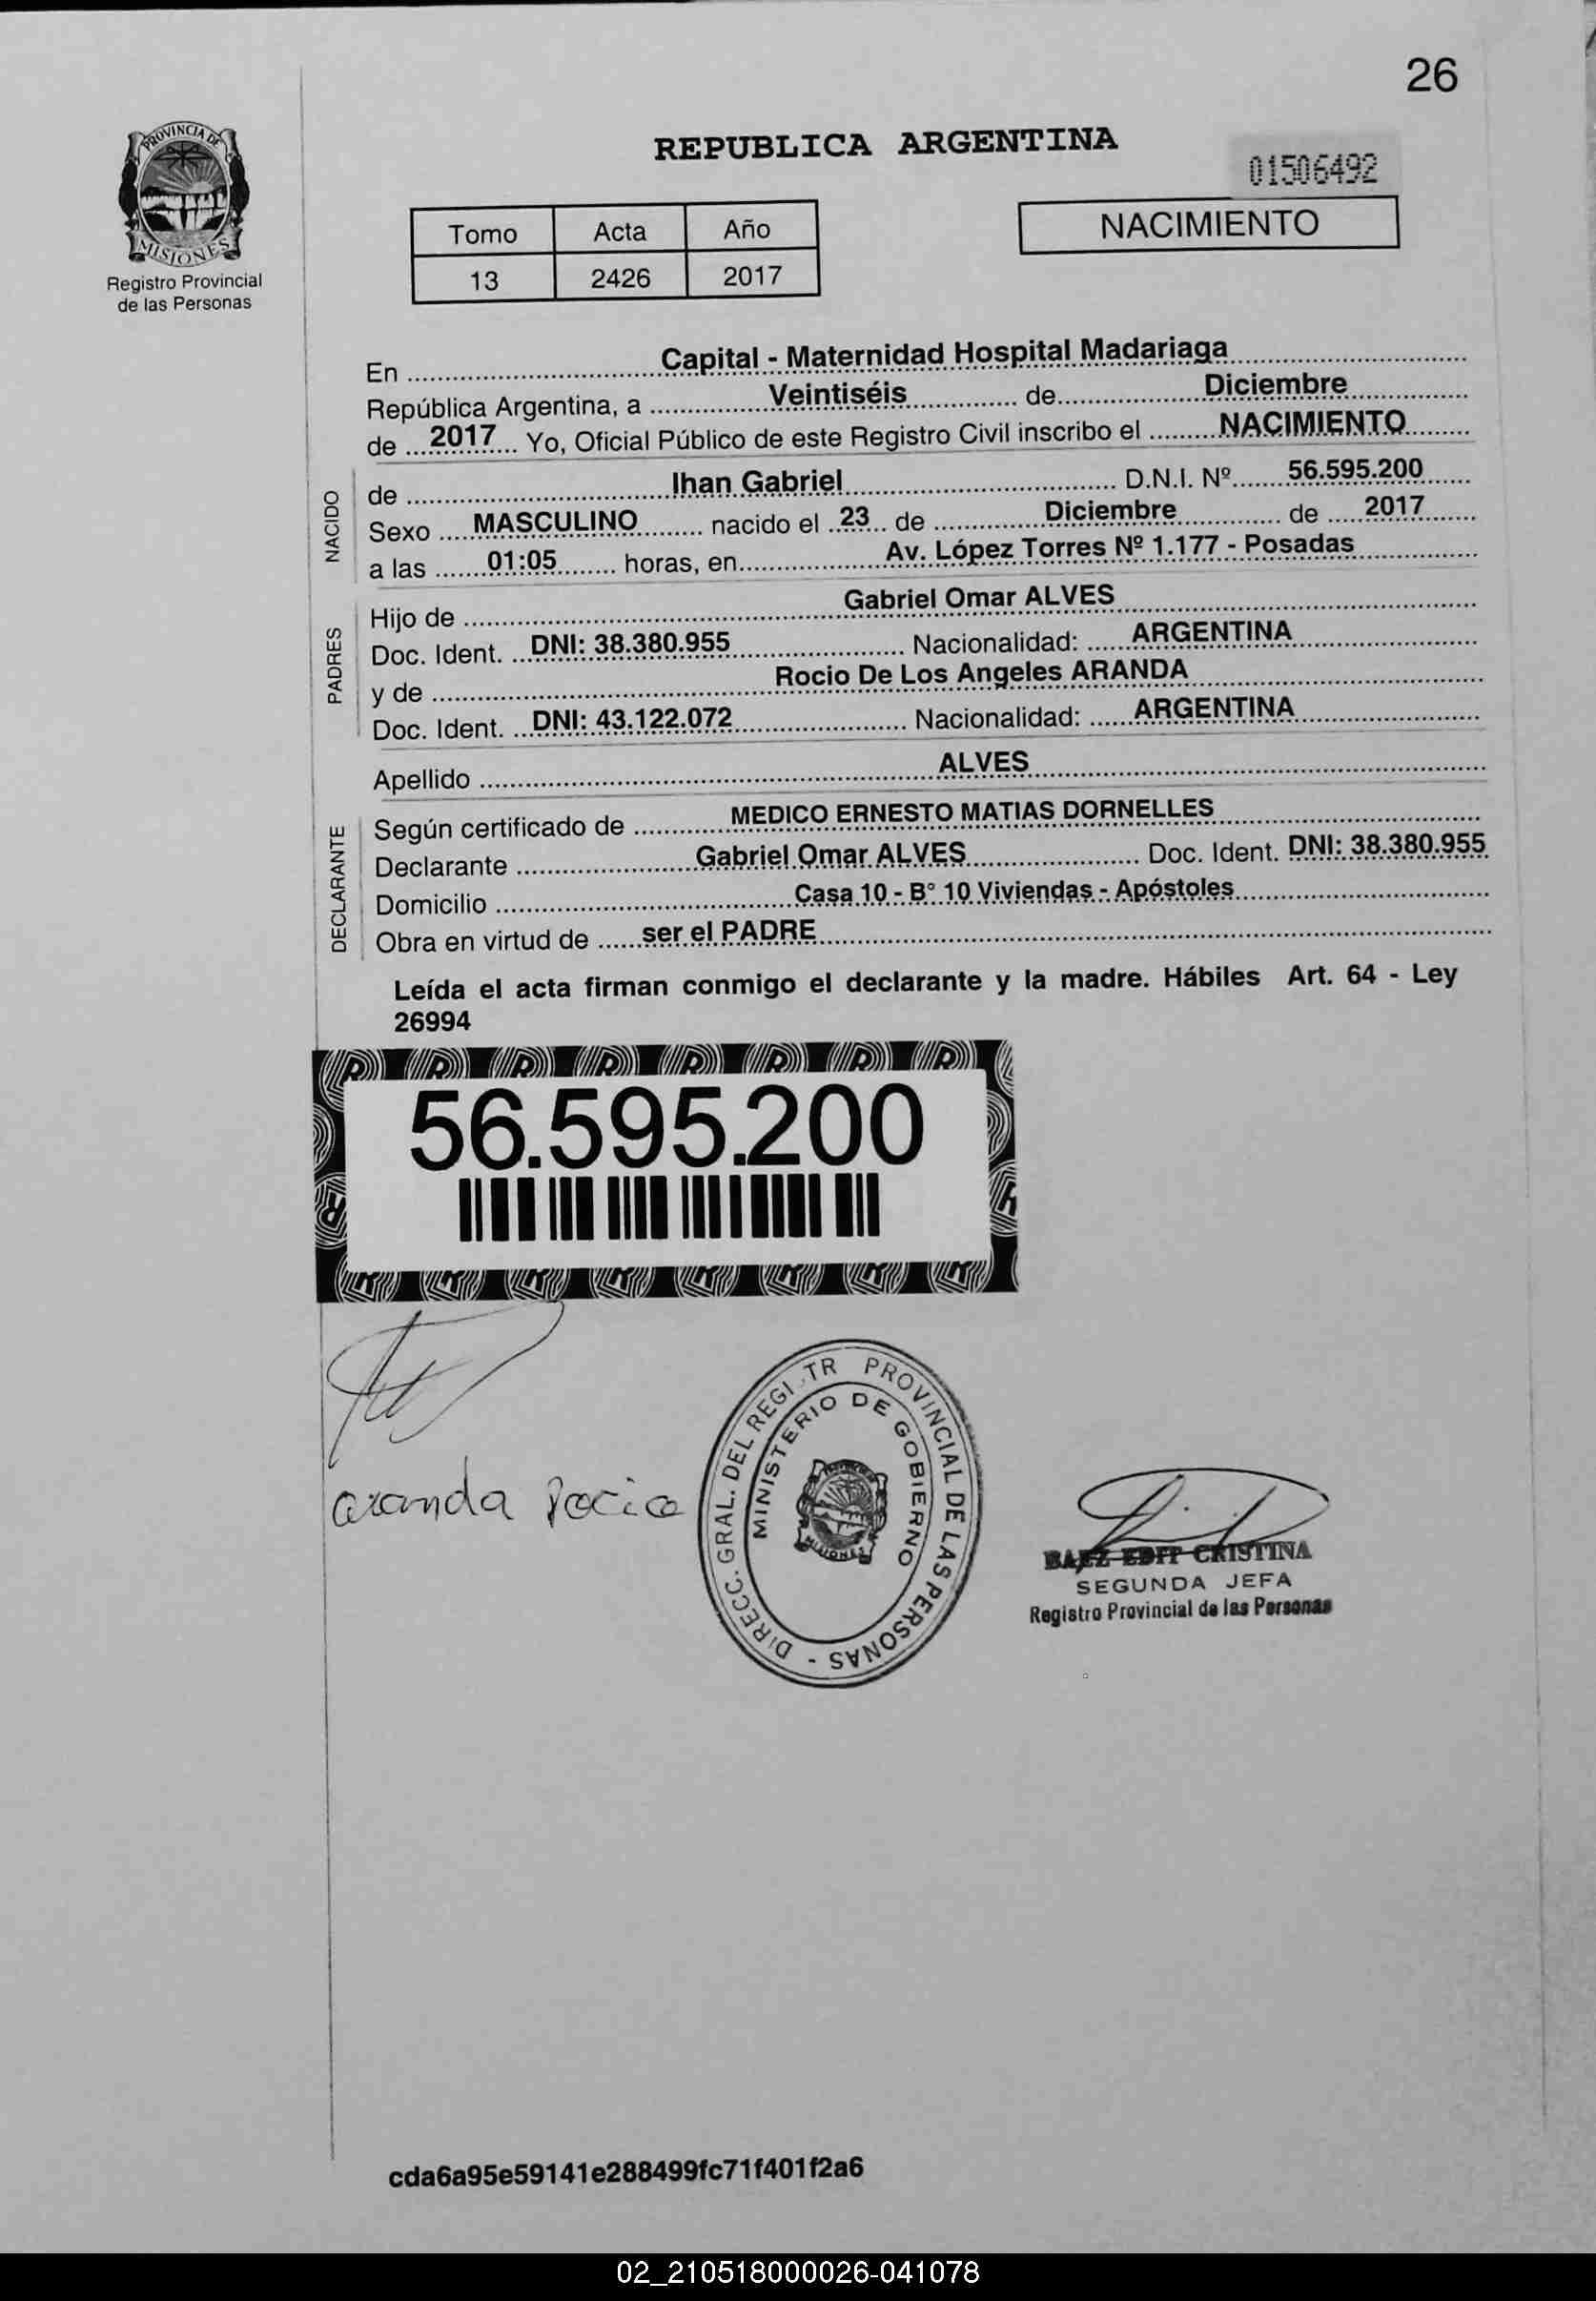 26
PROVINCIA DE
MISIONES
Registro Provincial
de las Personas
REPUBLICA ARGENTINA
01506492
NACIMIENTO
Tomo Acta Año
13 2426 2017
En ........ Capital - Maternidad Hospital Madariaga ........
República Argentina, a ........ Veintiséis ........ de ........ Diciembre ........
de ... 2017 ... Yo, Oficial Público de este Registro Civil inscribo el ........ NACIMIENTO ........
NACIDO
de ........ Ihan Gabriel ........ D.N.I. Nº ........ 56.595.200 ........
Sexo ..... MASCULINO ........ nacido el .. 23 .. de ........ Diciembre ........ de ..... 2017 ........
a las ....... 01:05 ........ horas, en ........ Av. López Torres Nº 1.177 - Posadas ........
PADRES
Hijo de ........ Gabriel Omar ALVES ........
Doc. Ident. ... DNI: 38.380.955 ........ Nacionalidad: ...... ARGENTINA ........
y de ........ Rocio De Los Angeles ARANDA ........
Doc. Ident. ... DNI: 43.122.072 ........ Nacionalidad: ...... ARGENTINA ........
Apellido ........ ALVES ........
DECLARANTE
Según certificado de ........ MEDICO ERNESTO MATIAS DORNELLES ........
Declarante ........ Gabriel Omar ALVES ........ Doc. Ident. DNI: 38.380.955
Domicilio ........ Casa 10 - B° 10 Viviendas - Apóstoles ........
Obra en virtud de ...... ser el PADRE ........
Leída el acta firman conmigo el declarante y la madre. Hábiles Art. 64 - Ley
26994
56.595.200
aranda Rocio
DIRECC. GRAL. DEL REGI TR PROVINCIAL DE LAS PERSONAS -
MINISTERIO DE GOBIERNO
MISIONES
BAEZ EDIT CRISTINA
SEGUNDA JEFA
Registro Provincial de las Personas
cda6a95e59141e288499fc71f401f2a6
02_210518000026-041078